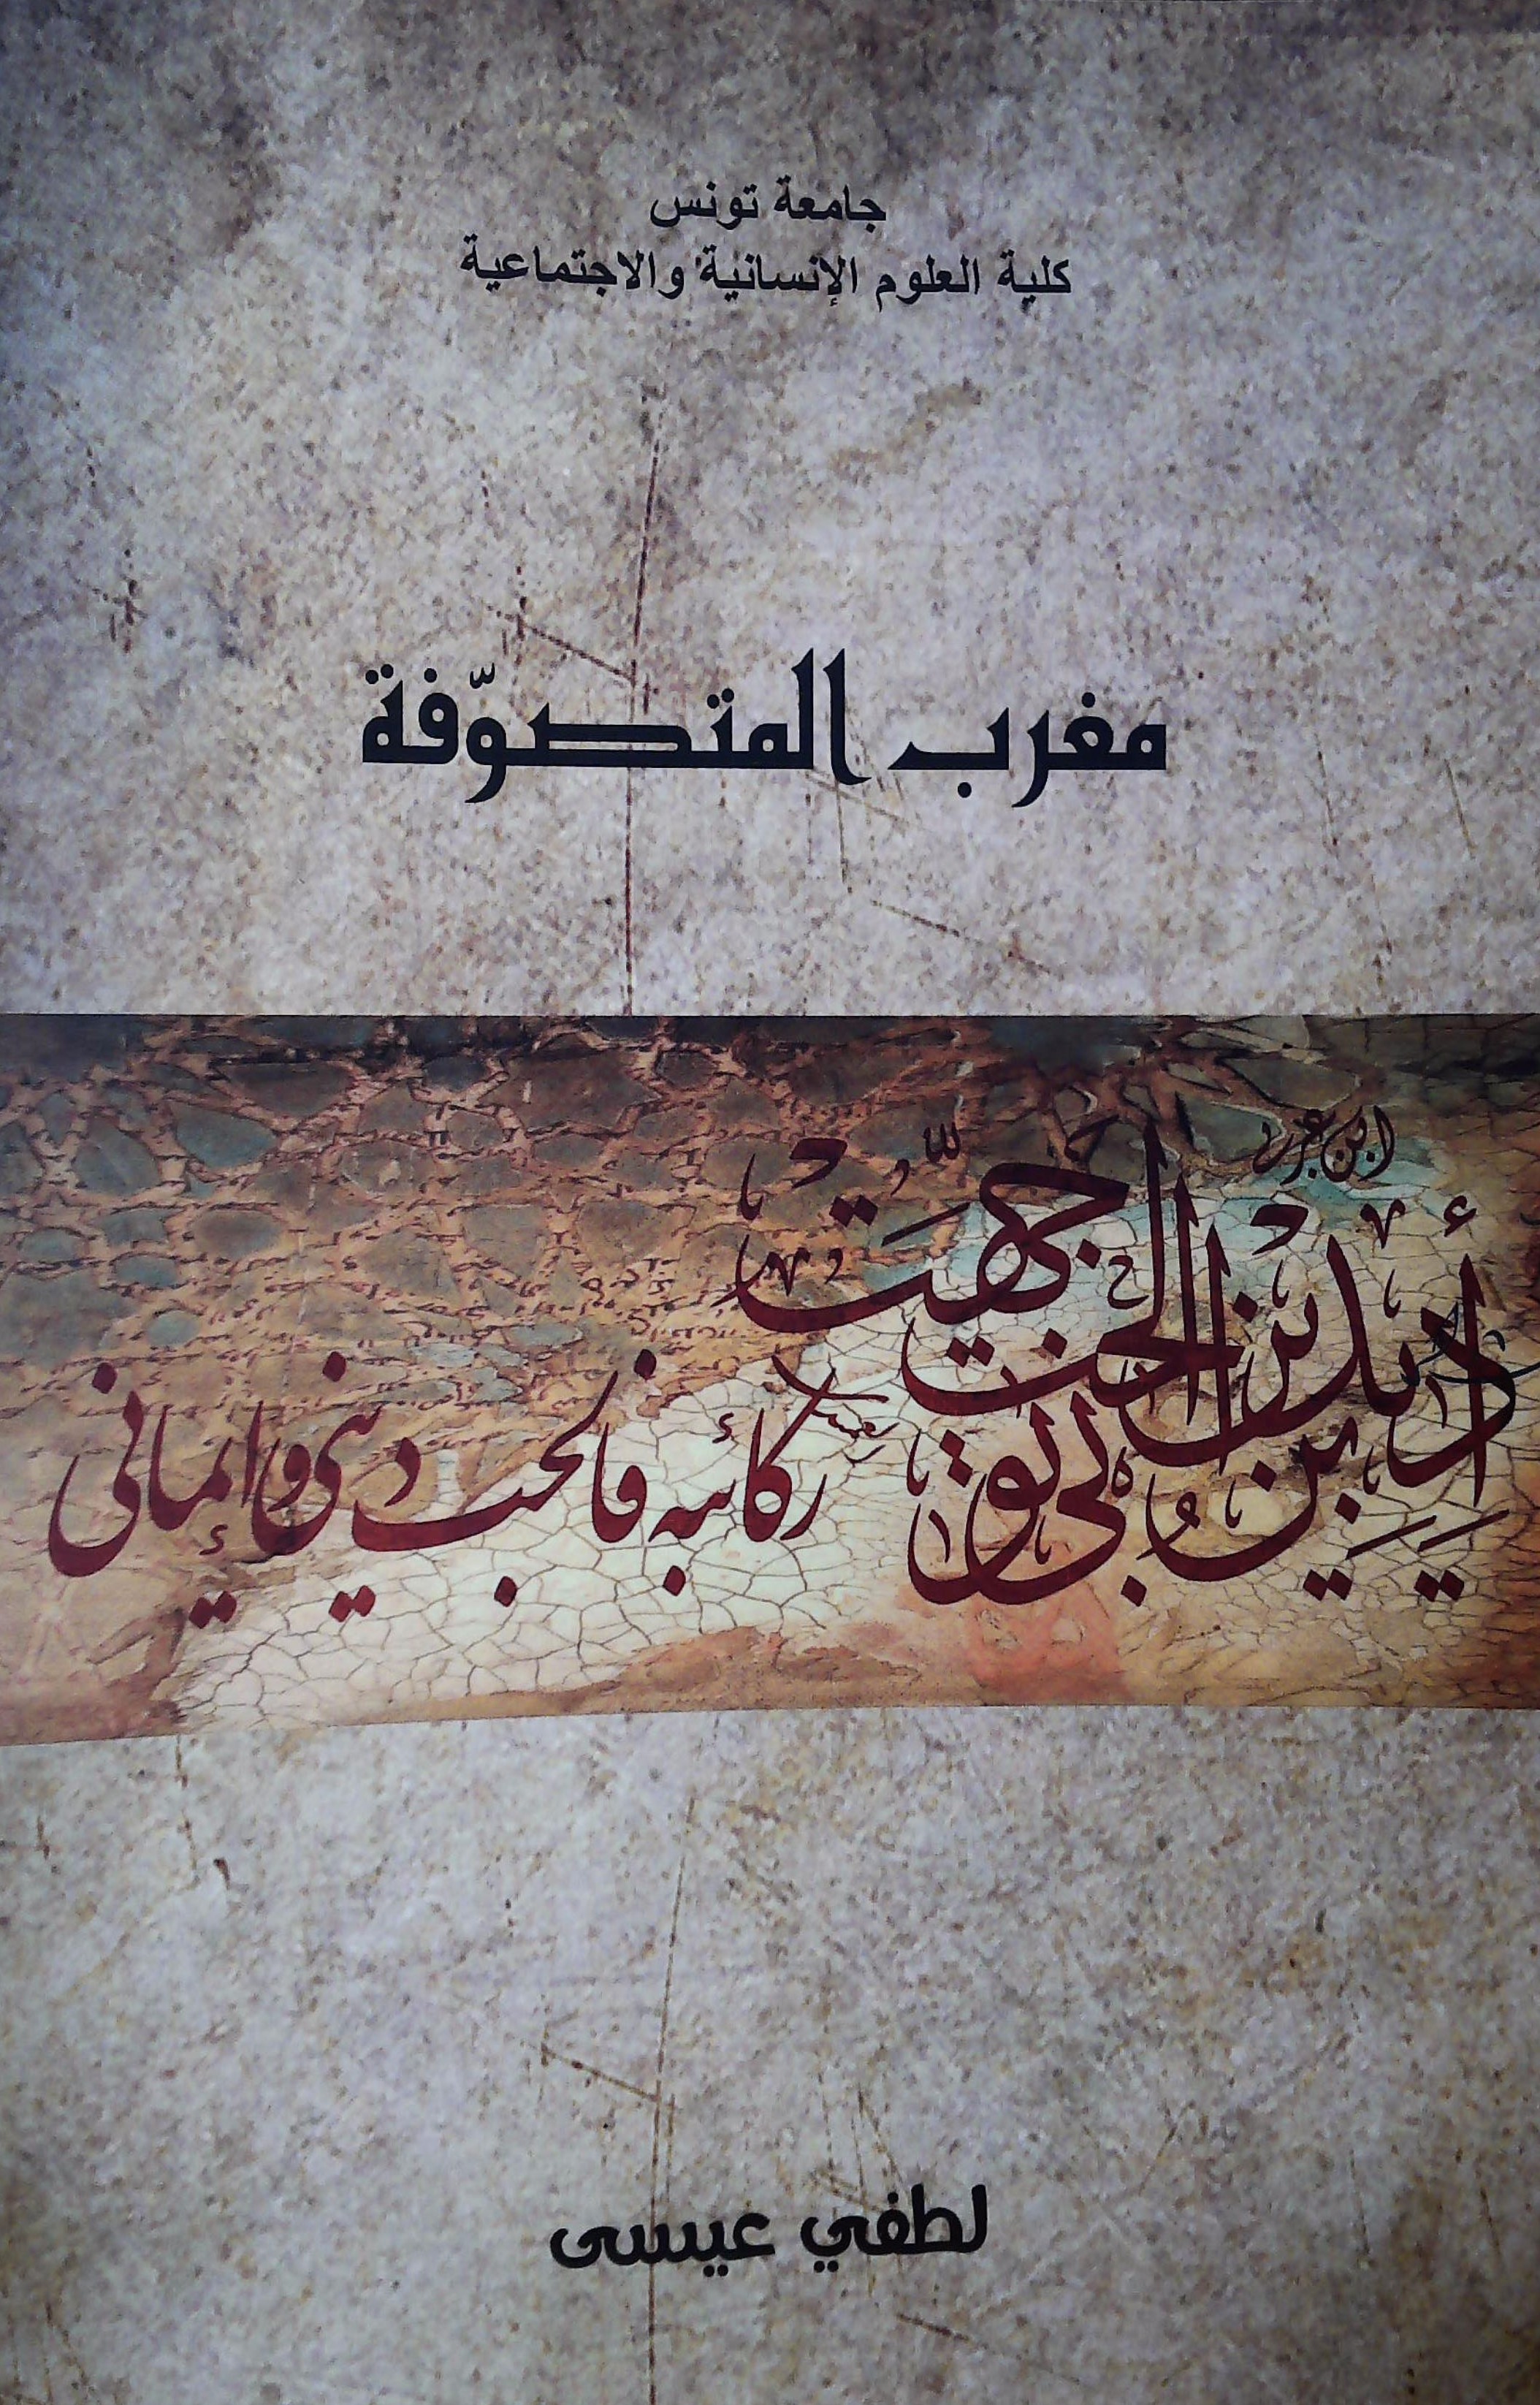 جامعة تونس
كلية العلوم الإنسانية والاجتماعية
مغرب المتصوّفة
ابن عربي
أدين بدين الحب أنى توجهت
ركائبه فالحب ديني وإيماني
لطفي عيسى